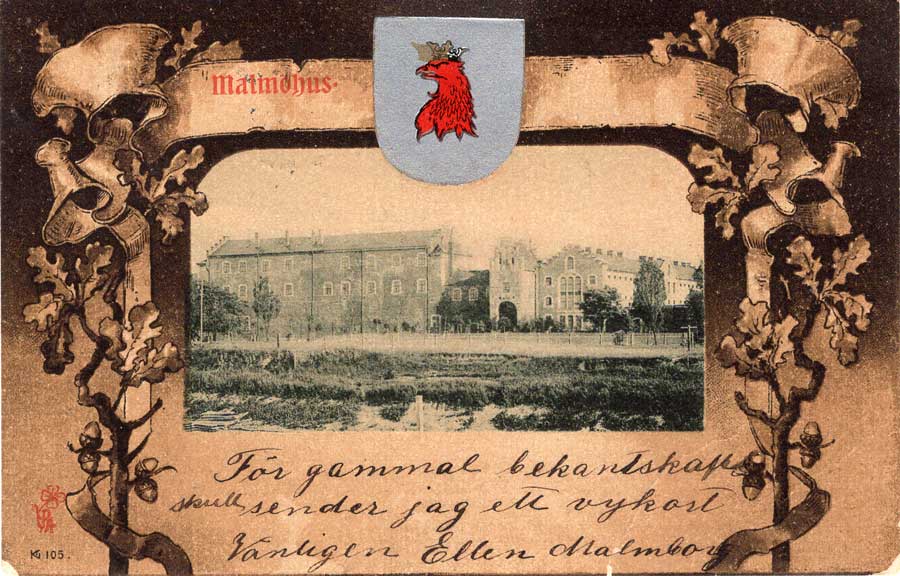 Malmöhus.
För gammal bekantskaps
skull sender jag ett vykort
Vänligen Ellen Malmborg
KG 105.